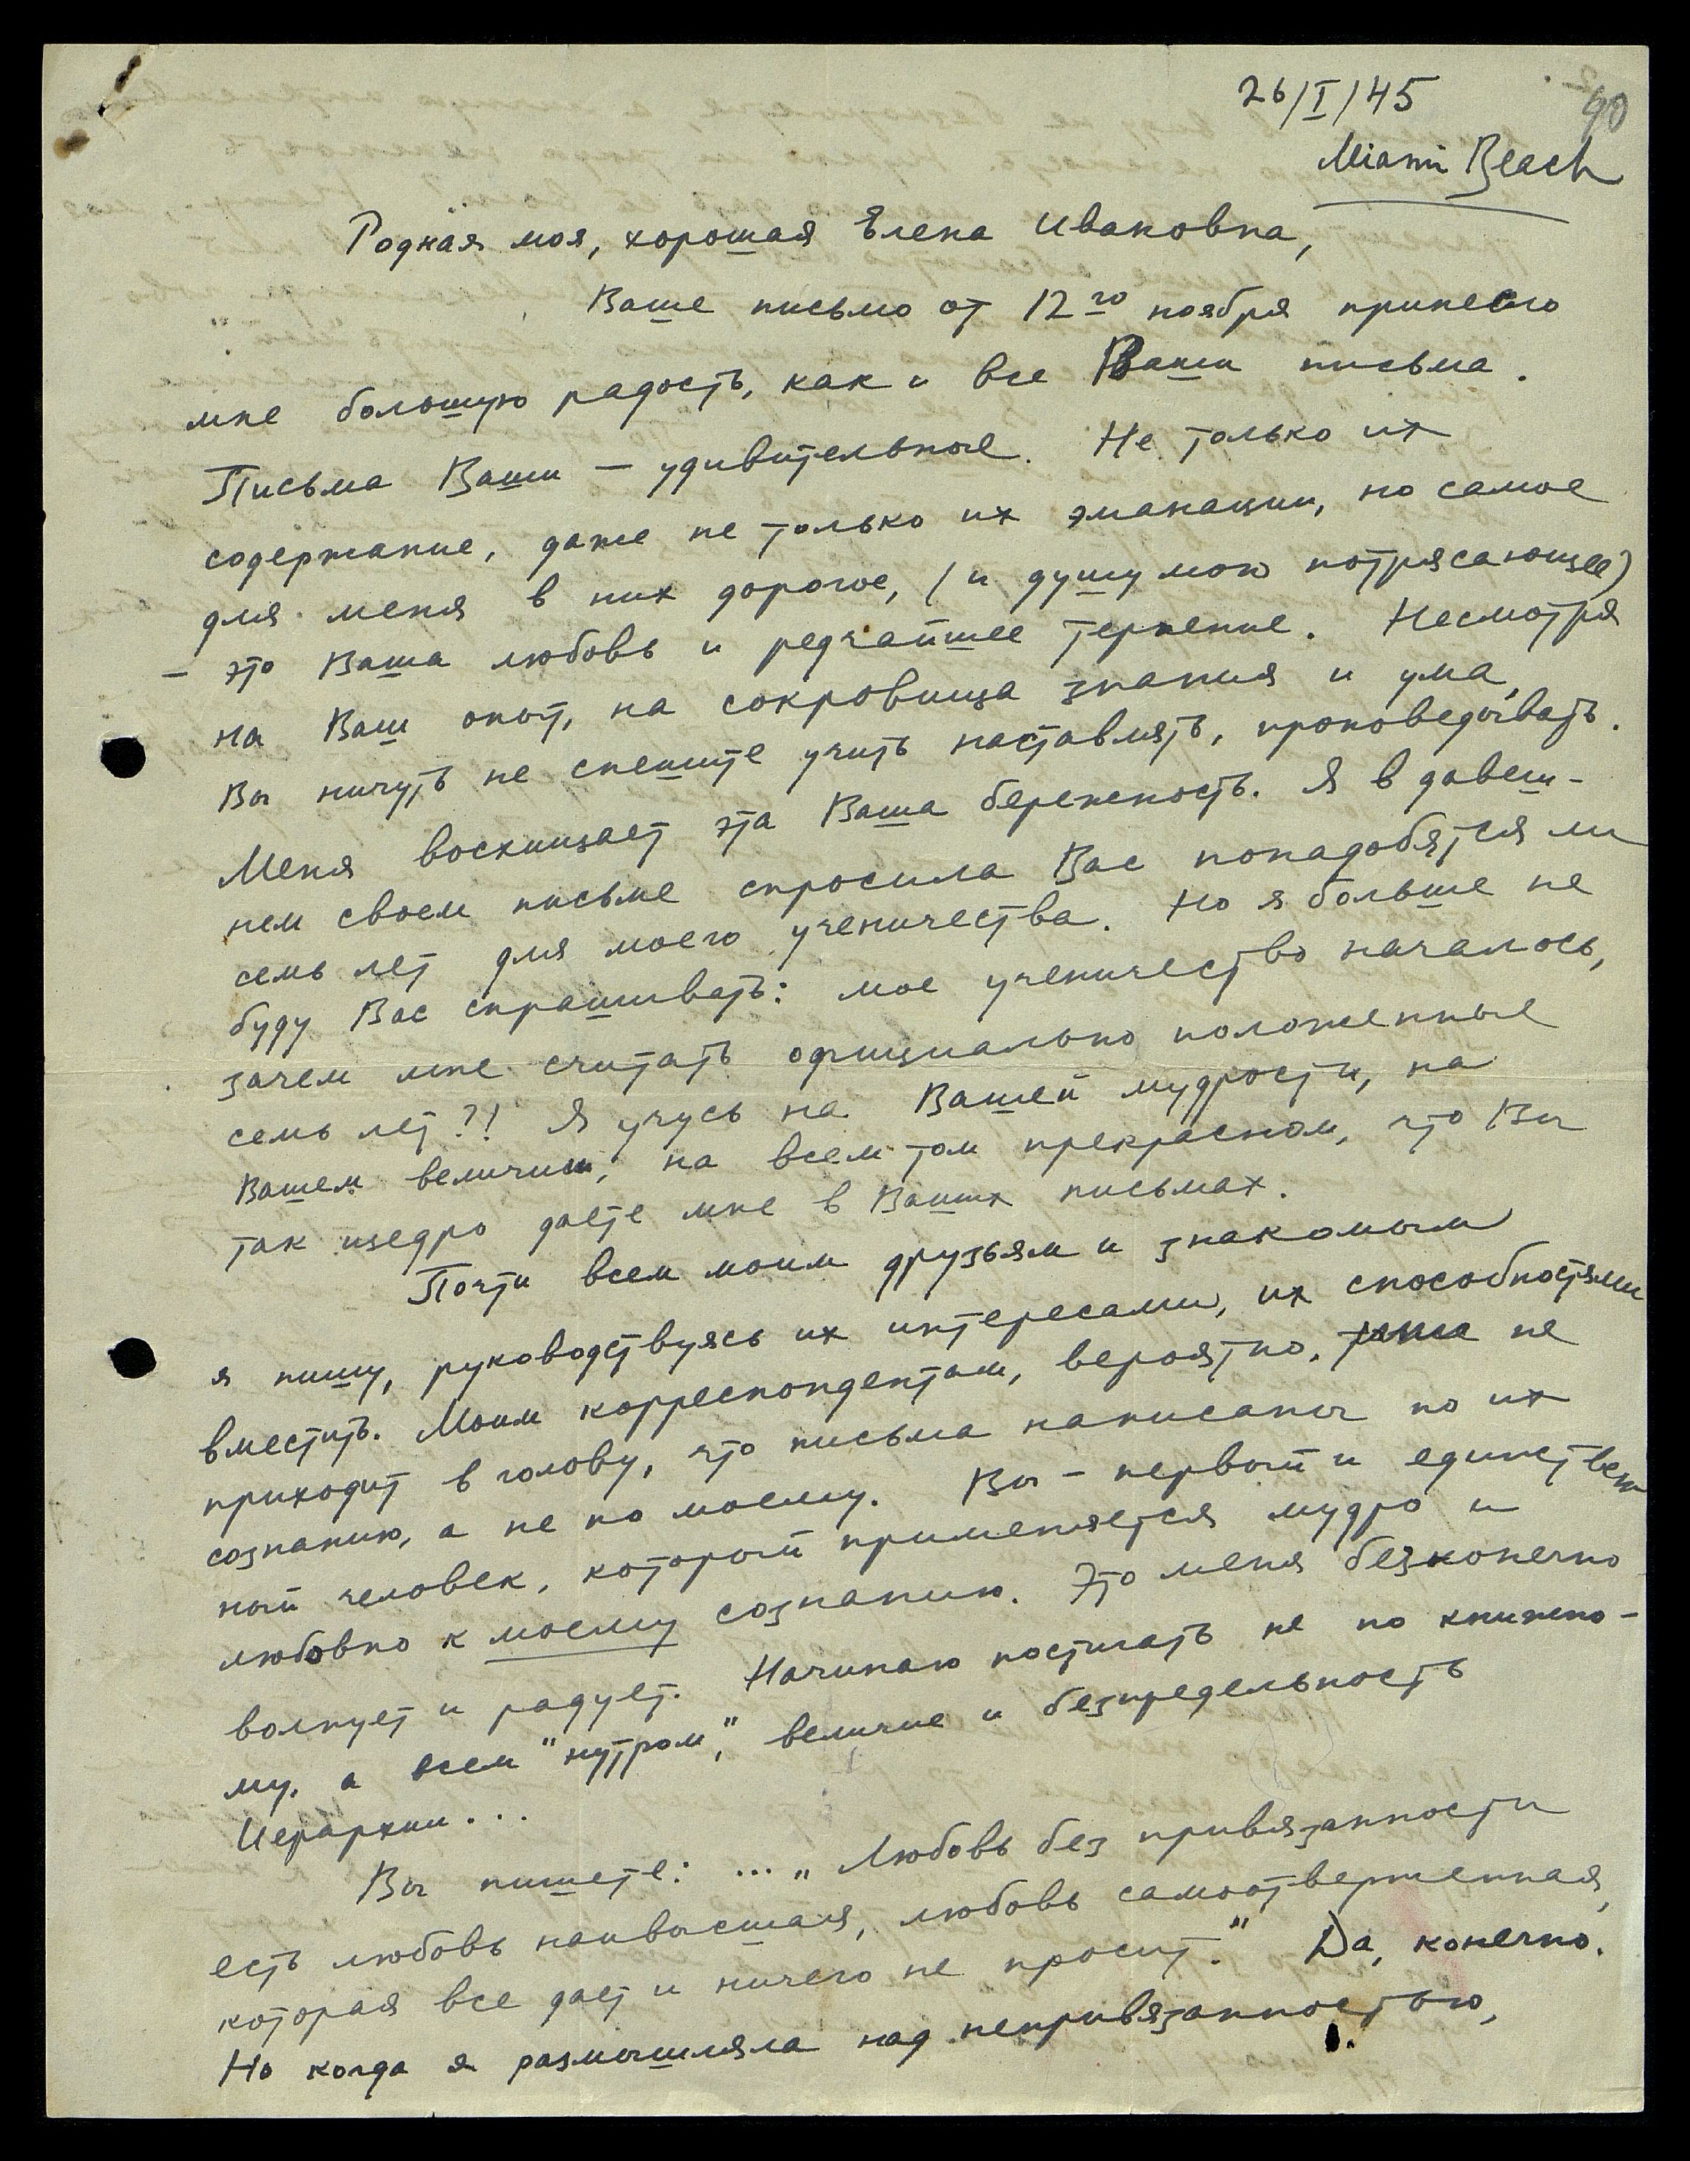 26/I/45
90
Miami Beach
Родная моя, хорошая Елена Ивановна,
Ваше письмо от 12го ноября принесло
мне большую радость, как и все Ваши письма.
Письма Ваши — удивительные. Не только их
содержание, даже не только их эманации, но самое
для меня в них дорогое, (и душу мою потрясающее)
— это Ваша любовь и редчайшее терпение. Несмотря
на Ваш опыт, на сокровища знания и ума,
Вы ничуть не спешите учить наставлять, проповедывать.
Меня восхищает эта Ваша бережность. Я в давеш-
нем своем письме спросила Вас понадобятся ли
семь лет для моего ученичества. Но я больше не
буду Вас спрашивать: мое ученичество началось,
зачем мне считать официально положенные
семь лет?! Я учусь на Вашей мудрости, на
Вашем величии, на всем том прекрасном, что Вы
так щедро даете мне в Ваших письмах.
Почти всем моим друзьям и знакомым
я пишу, руководствуясь их интересами, их способностями
вместить. Моим корреспондентам, вероятно, не
приходит в голову, что письма написаны по их
сознанию, а не по моему. Вы — первый и единствен
ный человек, который применяется мудро и
любовно к моему сознанию. Это меня безконечно
волнует и радует. Начинаю постигать не по книжно-
му, а всем "нутром", величие и безпредельность
Иерархии...
Вы пишете: ... „Любовь без привязанности
есть любовь наивысшая, любовь самоотверженная,
которая все дает и ничего не просит." Да, конечно.
Но когда я размышляла над непривязанностью,